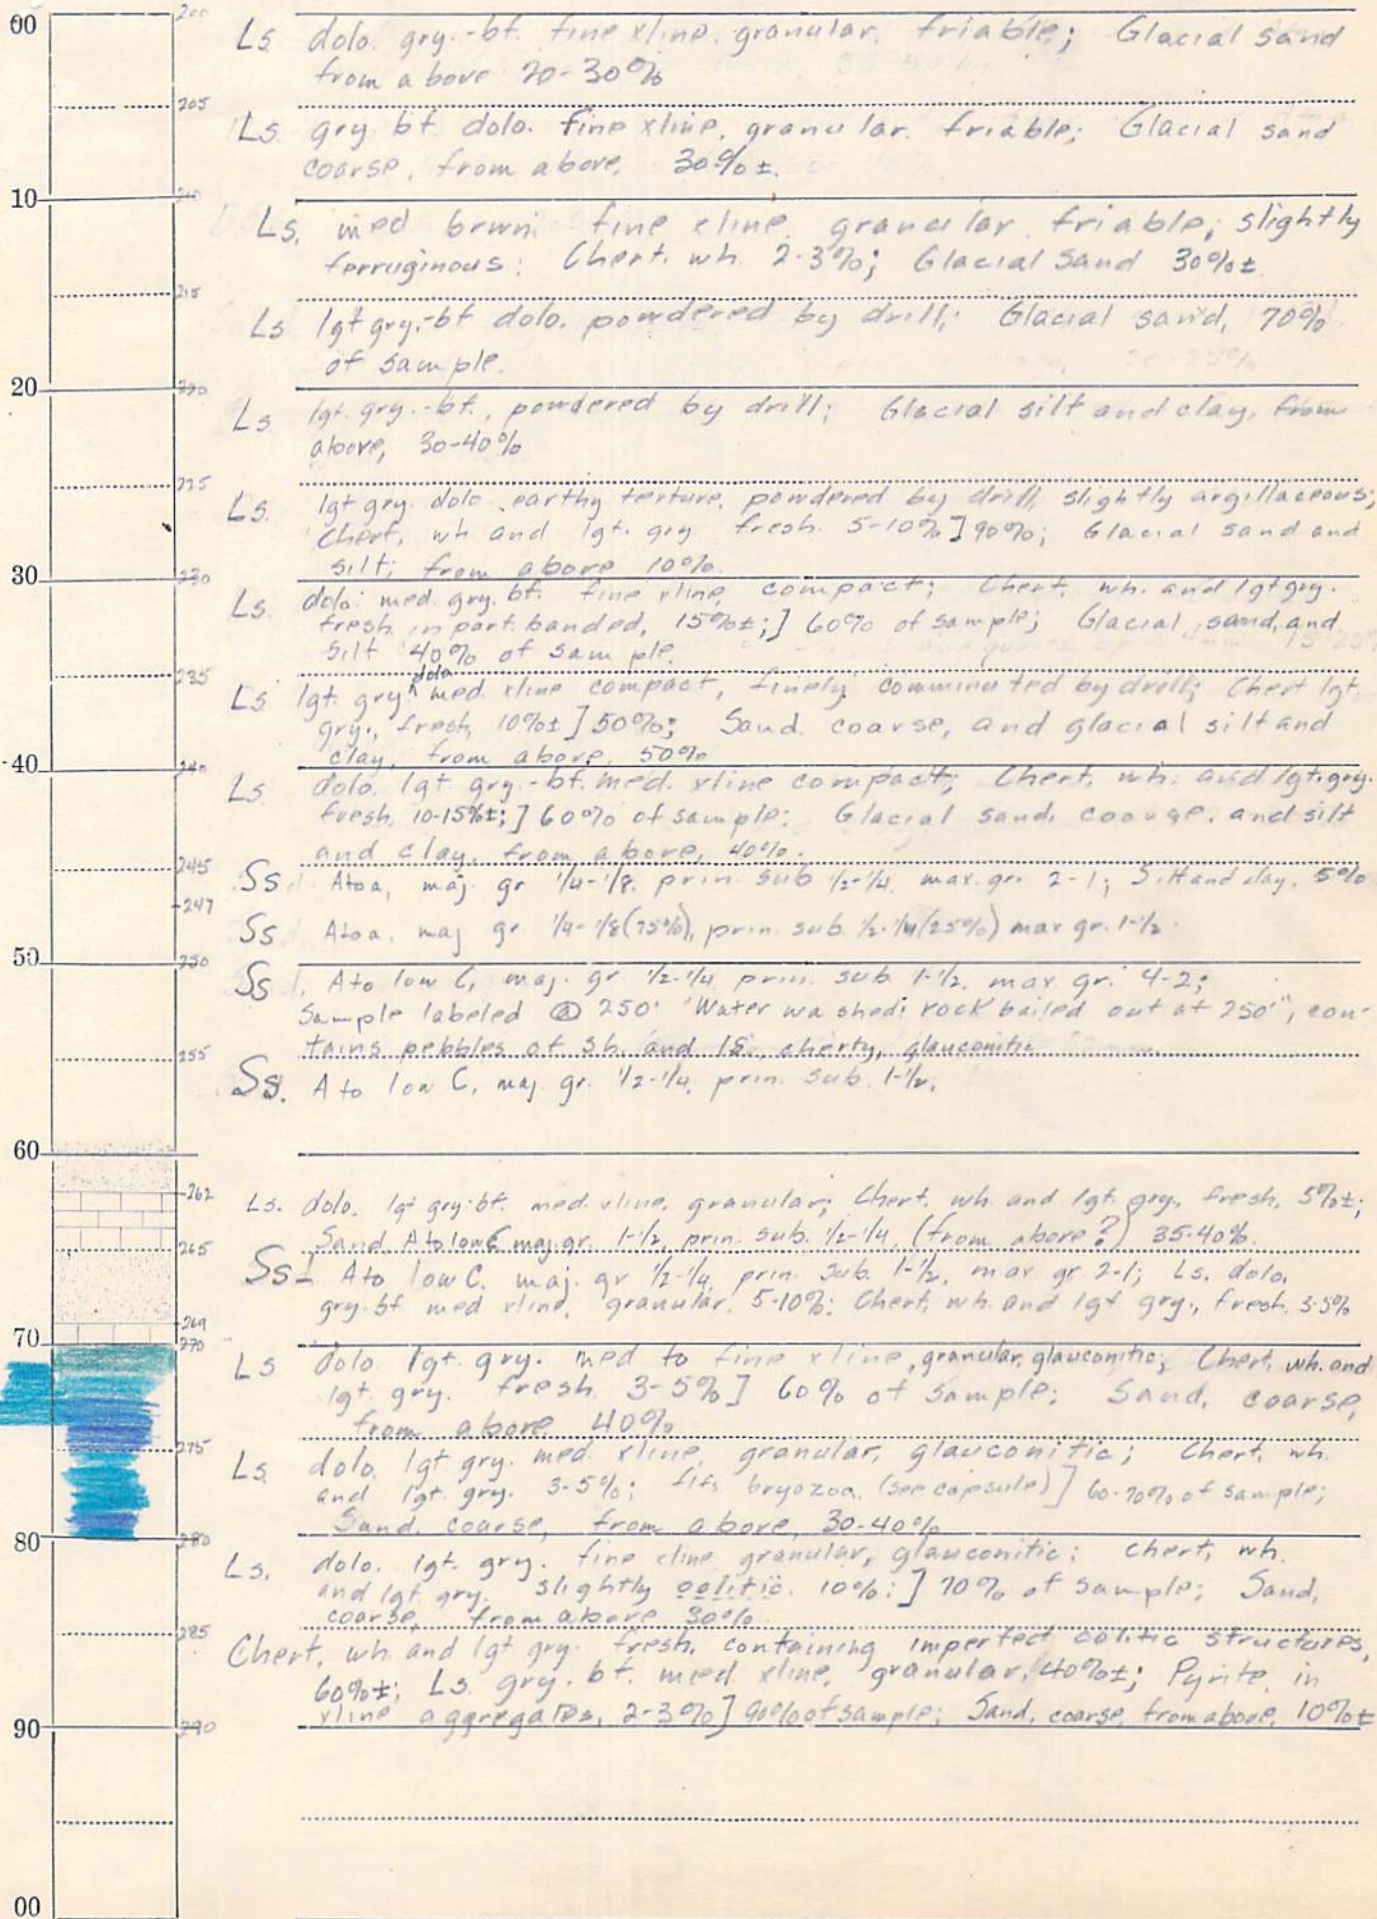 00 200
Ls dolo. gry.-bf. fine xline. granular, friable; Glacial sand
from above 20-30%
205
Ls gry. bf. dolo. fine xline, granular. friable; Glacial sand
coarse, from above, 30%±.
10 210
Ls. med brwn fine xline granular friable; slightly
ferruginous; Chert. wh. 2-3%; Glacial Sand 30%±
215
Ls lgt gry.-bf dolo. powdered by drill; Glacial sand, 70%
of sample.
20 220
Ls lgt. gry.-bf., powdered by drill; Glacial silt and clay, from
above, 30-40%
225
Ls. lgt gry. dolo. earthy texture, powdered by drill, slightly argillaceous;
Chert, wh and lgt. gry fresh 5-10% ] 90%; Glacial sand and
silt; from above 10%.
30 230
Ls. dolo. med. gry. bf. fine xline, compact; Chert, wh. and lgt gry.
fresh in part banded, 15%±; ] 60% of sample; Glacial sand, and
silt 40% of sample.
235
dolo
Ls lgt. gry. med. xline compact, finely comminuted by drill; Chert lgt.
gry., fresh, 10%± ] 50%; Sand, coarse, and glacial silt and
clay, from above, 50%
40 240
Ls dolo. lgt gry.-bf. med. xline compact; Chert, wh. and lgt. gry.
fresh, 10-15%±; ] 60% of sample; Glacial sand, coarse, and silt
and clay, from above, 40%.
245
Ss Atoa, maj. gr 1/4-1/8, prin. sub 1/2-1/4, max. gr. 2-1; Silt and clay, 5%
247
Ss Atoa, maj gr 1/4-1/8 (75%), prin. sub. 1/2-1/4 (25%) max gr. 1-1/2.
50 250
Ss A to low C, maj. gr 1/2-1/4 prin. sub 1-1/2, max gr. 4-2;
Sample labeled @ 250' "Water washed; rock bailed out at 250'", con-
tains pebbles of sh. and ls., cherty, glauconitic
255
Ss. A to low C, maj. gr. 1/2-1/4, prin. sub. 1-1/2,
60
262
Ls. dolo. lgt gry-bf. med. xline, granular; Chert. wh and lgt. gry., fresh, 5%±;
Sand. A to low C maj. gr. 1-1/2, prin. sub. 1/2-1/4, (from above?) 35-40%.
265
Ss A to low C. maj. gr 1/2-1/4, prin. sub. 1-1/2, max gr. 2-1; Ls. dolo.
gry-bf med xline, granular, 5-10%; Chert, wh and lgt gry., fresh. 3-5%
269
70 270
Ls dolo lgt. gry. med to fine xline, granular, glauconitic; Chert, wh. and
lgt. gry. fresh. 3-5% ] 60% of sample; Sand, coarse,
from above 40%
275
Ls dolo. lgt gry. med. xline, granular, glauconitic; Chert, wh.
and lgt. gry. 3-5%; bryozoa (see capsule) ] 60-70% of sample;
Sand, coarse, from above, 30-40%
80 280
Ls. dolo. lgt. gry. fine xline granular, glauconitic; chert, wh.
and lgt gry. slightly oolitic. 10%; ] 70% of sample; Sand,
coarse, from above 30%.
285
Chert, wh and lgt gry. fresh, containing imperfect oolitic structures,
60%±; Ls gry. bf. med. xline, granular, 40%±; Pyrite, in
xline aggregates, 2-3% ] 90% of sample; Sand, coarse, from above, 10%±
90 290
00